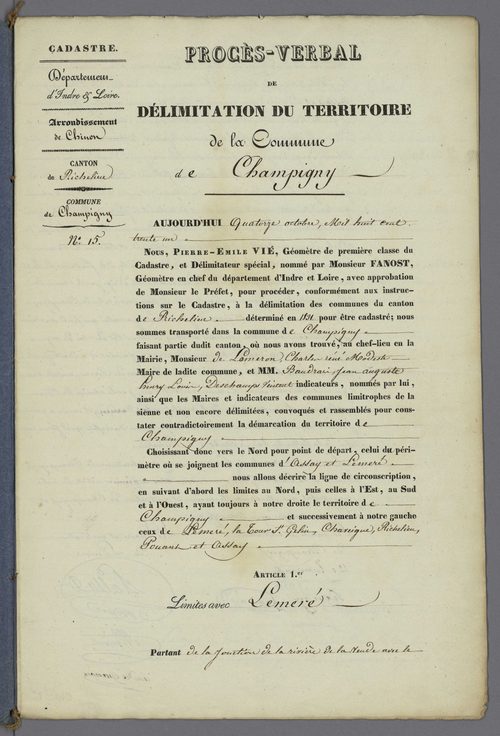 CADASTRE.
Département
d'Indre & Loire.
Arrondissement
de Chinon
CANTON
de Richelieu
COMMUNE
de Champigny
N.º 15.
PROCÈS-VERBAL
DE
DÉLIMITATION DU TERRITOIRE
de la Commune
de Champigny
AUJOURD'HUI Quatorze octobre, Mil huit cent
trente un
NOUS, PIERRE-EMILE VIÉ, Géomètre de première classe du
Cadastre, et Délimitateur spécial, nommé par Monsieur FANOST,
Géomètre en chef du département d'Indre et Loire, avec approbation
de Monsieur le Préfet, pour procéder, conformément aux instruc-
tions sur le Cadastre, à la délimitation des communes du canton
de Richelieu déterminé en 1831 pour être cadastré; nous
sommes transporté dans la commune de Champigny
faisant partie dudit canton, où nous avons trouvé, au chef-lieu en la
Mairie, Monsieur de Lomeron, Charles réné Modeste
Maire de ladite commune, et MM. Baudrai jean auguste
henry Louis, Deschamps Vincent indicateurs, nommés par lui,
ainsi que les Maires et indicateurs des communes limitrophes de la
sienne et non encore délimitées, convoqués et rassemblés pour cons-
tater contradictoirement la démarcation du territoire de
Champigny
Choisissant donc vers le Nord pour point de départ, celui du péri-
mètre où se joignent les communes d'Assay et Lemeré
nous allons décrire la ligne de circonscription,
en suivant d'abord les limites au Nord, puis celles à l'Est, au Sud
et à l'Ouest, ayant toujours à notre droite le territoire de
Champigny et successivement à notre gauche
ceux de Lemeré, la Tour St. Gelin, Chaveigne, Richelieu,
Pouant et Assay
ARTICLE 1.er
Limites avec Lemeré
Partant de la jonction de la rivière de la Veude avec le